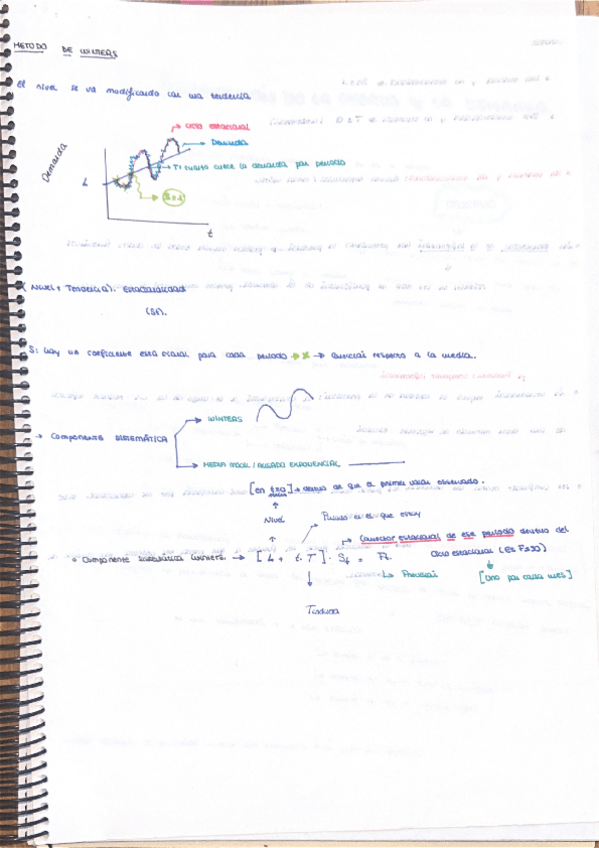 METODO DE WINTERS
El nivel se va modificando con una tendencia
Ciclo estacional
Demanda
Demanda
T: cuanto crece la demanda por periodo
L
t
(Nivel + Tendencia). Estacionalidad
(St).
S: hay un coeficiente estacional para cada periodo → → respecto a la media.
WINTERS
→ Componente SISTEMÁTICA
MEDIA MOVIL / ALISADO EXPONENCIAL
[en t=0] → antes de que el primer valor observado.
Nivel
Periodo en el que estoy
Coeficiente estacional de ese periodo dentro del
Componente sistemática Winters → [L + t. T]. St = Ft.
ciclo estacional
↳ Previsión
[uno por cada mes]